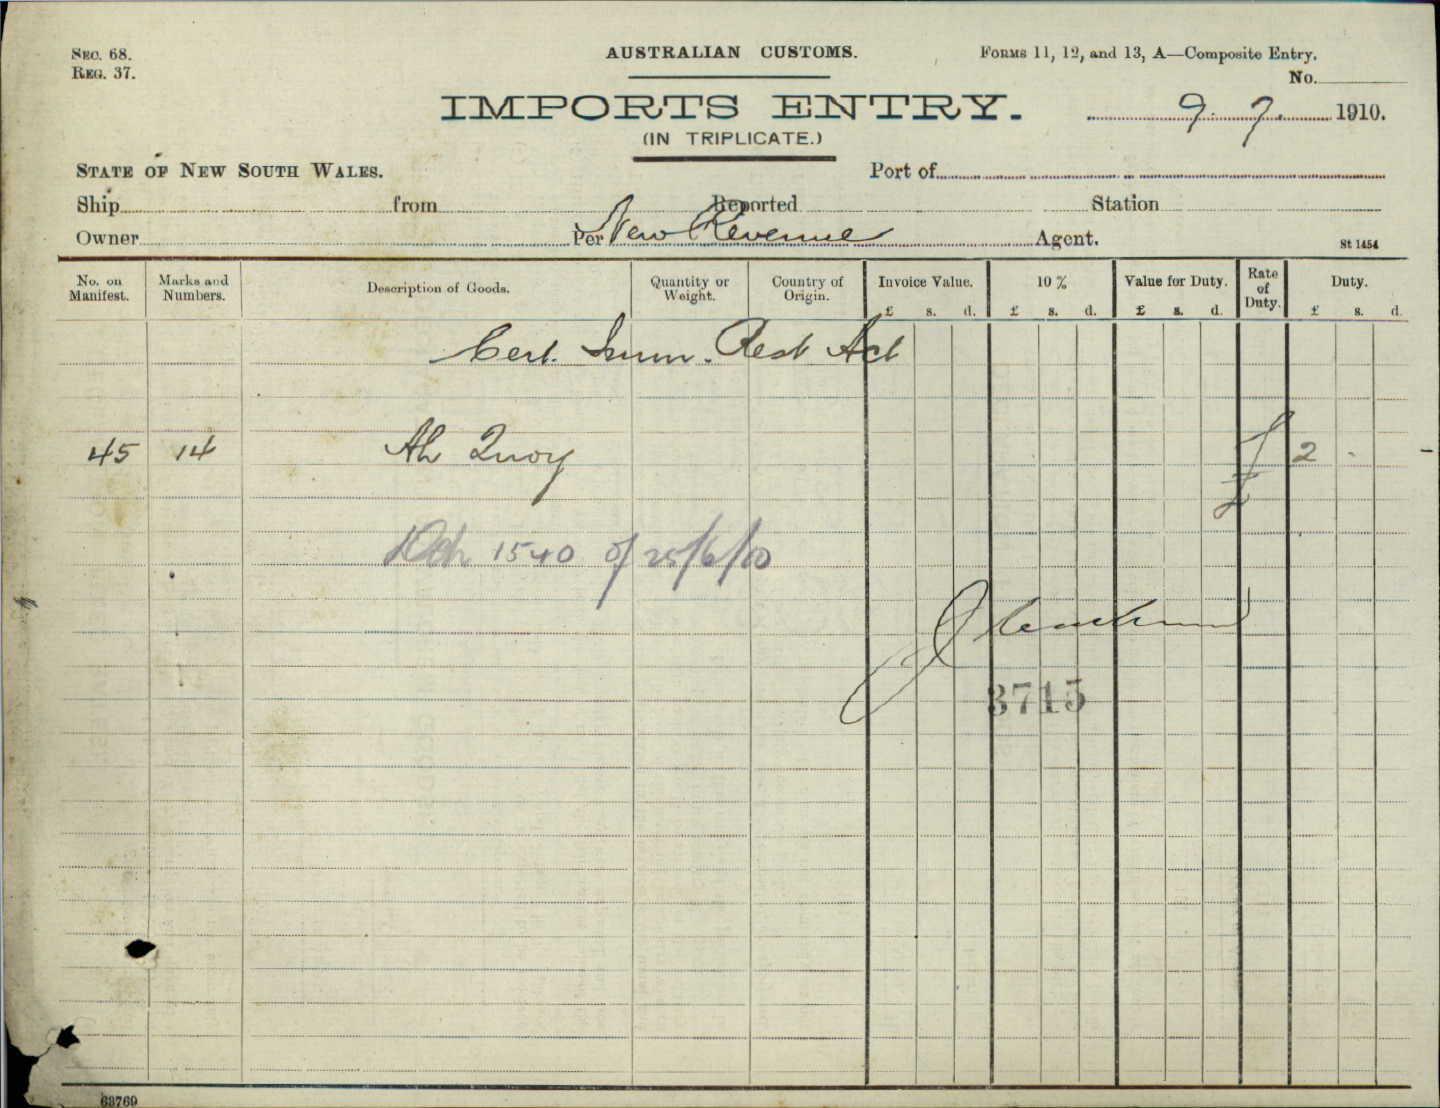 SEC. 68.
REG. 37.
AUSTRALIAN CUSTOMS.
FORMS 11, 12, and 13, A—Composite Entry.
No.
IMPORTS ENTRY.
9. 7. 1910.
(IN TRIPLICATE.)
STATE OF NEW SOUTH WALES.
Port of
Ship from Reported Station
Owner Per New Revenue Agent.
St 1454
No. on Manifest. Marks and Numbers. Description of Goods. Quantity or Weight. Country of Origin. Invoice Value. 10 % Value for Duty. Rate of Duty. Duty.
£ s. d. £ s. d. £ s. d. £ s. d.
Cert. Imm. Rest Act
45 14 Ah Quoy £ 2 . -
1540 of 25/6/10
3715
63769